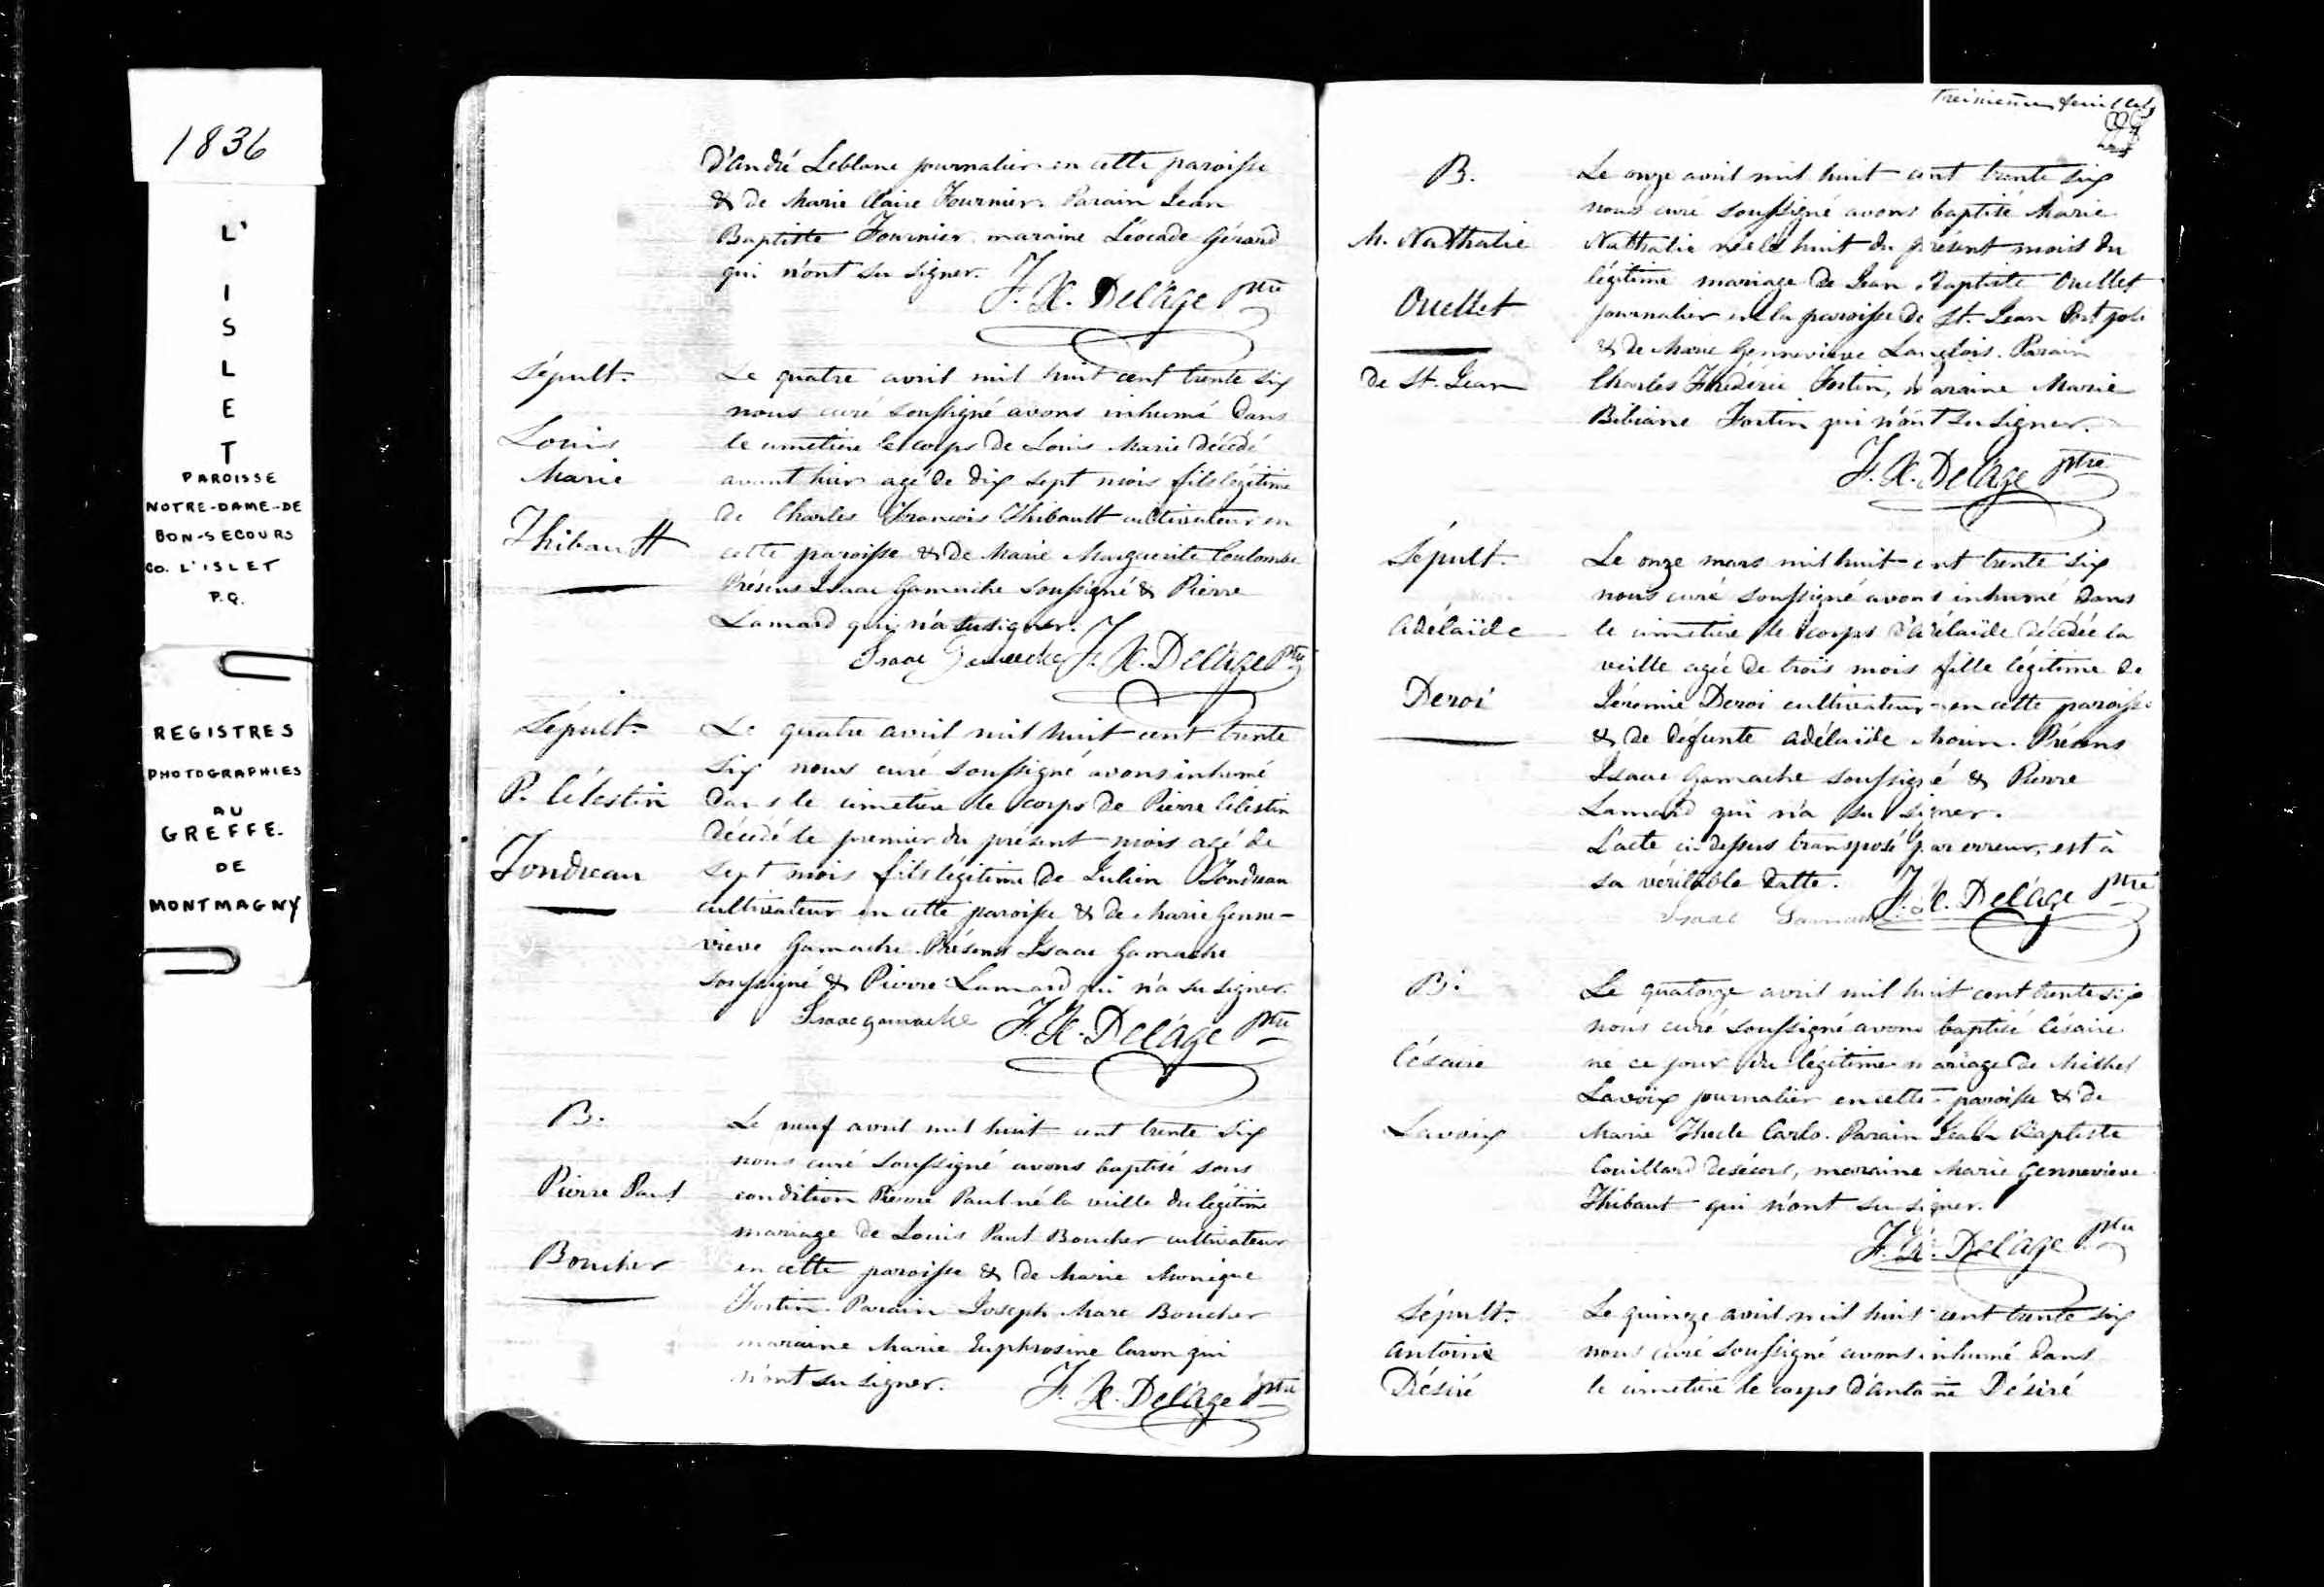 1836
L'
I
S
L
E
T
PAROISSE
NOTRE-DAME-DE
BON-SECOURS
CO. L'ISLET
P.Q.
REGISTRES
PHOTOGRAPHIES
AU
GREFFE.
DE
MONTMAGNY
D'andré Leblanc journalier en cette paroisse
& de Marie Claire Fournier. Parain Jean
Baptiste Fournier maraine Léocade Gérard
qui n'ont su signer.
F. X. Delâge Ptre
Sépult.
Louis
Marie
Thibault
Le quatre avril mil huit cent trente six
nous curé soussigné avons inhumé dans
le cimetiere le corps de Louis Marie décédé
avant hier agé de dix sept mois fils légitime
de Charles François Thibault cultivateur en
cette paroisse & de Marie Marguerite Coulombe
Présens Isaac Gamache soussigné & Pierre
Lamard qui n'a su signer.
Isaac Gamache F. X. Delâge Ptre
Sépult.
P. Célestin
Tondreau
Le quatre avril mil huit cent trente
six nous curé soussigné avons inhumé
dans le cimetiere le corps de Pierre Célestin
décédé le premier du présent mois agé de
sept mois fils légitime de Julien Tondreau
cultivateur en cette paroisse & de Marie Genne-
vieve Gamache. Présens Isaac Gamache
soussigné & Pierre Lamard qui n'a su signer.
Isaac gamache F. X. Delâge Ptre
B.
Pierre Paul
Boucher
Le neuf avril mil huit cent trente six
nous curé soussigné avons baptisé sous
condition Pierre Paul né la veille du légitime
mariage de Louis Paul Boucher cultivateur
en cette paroisse & de Marie Monique
Fortin. Parain Joseph Marc Boucher
maraine Marie Euphrosine Caron qui
n'ont su signer.
F. X. Delâge Ptre
Treisieme feuillet
B.
M. Nathalie
Ouellet
de St. Jean
Le onze avril mil huit cent trente six
nous curé soussigné avons baptisé Marie
Nathalie née le huit du présent mois du
légitime mariage de Jean Baptiste Ouellet
journalier en la paroisse de St. Jean Port joli
& de Marie Gennevieve Langlois. Parain
Charles Frédéric Fortin, maraine Marie
Bibiane Fortin qui n'ont su signer.
F. X. Delâge Ptre
Sépult.
Adélaïde
Deroi
Le onze mars mil huit cent trente six
nous curé soussigné avons inhumé dans
le cimetiere le corps d'adélaïde décédée la
veille agée de trois mois fille légitime de
Jérémie Deroi cultivateur en cette paroisse
& de défunte adélaïde Morin. Présens
Isaac Gamache soussigné & Pierre
Lamard qui n'a su signer.
L'acte ci-dessus transposé par erreur, est à
sa véritable datte. F. X. Delâge Ptre
Isaac Gamache
B.
Césaire
Lavoix
Le quatorze avril mil huit cent trente six
nous curé soussigné avons baptisé Césaire
né ce jour du légitime mariage de Michel
Lavoix journalier en cette paroisse & de
Marie Thecle Carlo. Parain Jean Baptiste
Couillard desécors, maraine Marie Gennevieve
Thibaut qui n'ont su signer.
F. X. Delâge Ptre
Sépult.
Antoine
Désiré
Le quinze avril mil huit cent trente six
nous curé soussigné avons inhumé dans
le cimetiere le corps d'antoine Désiré